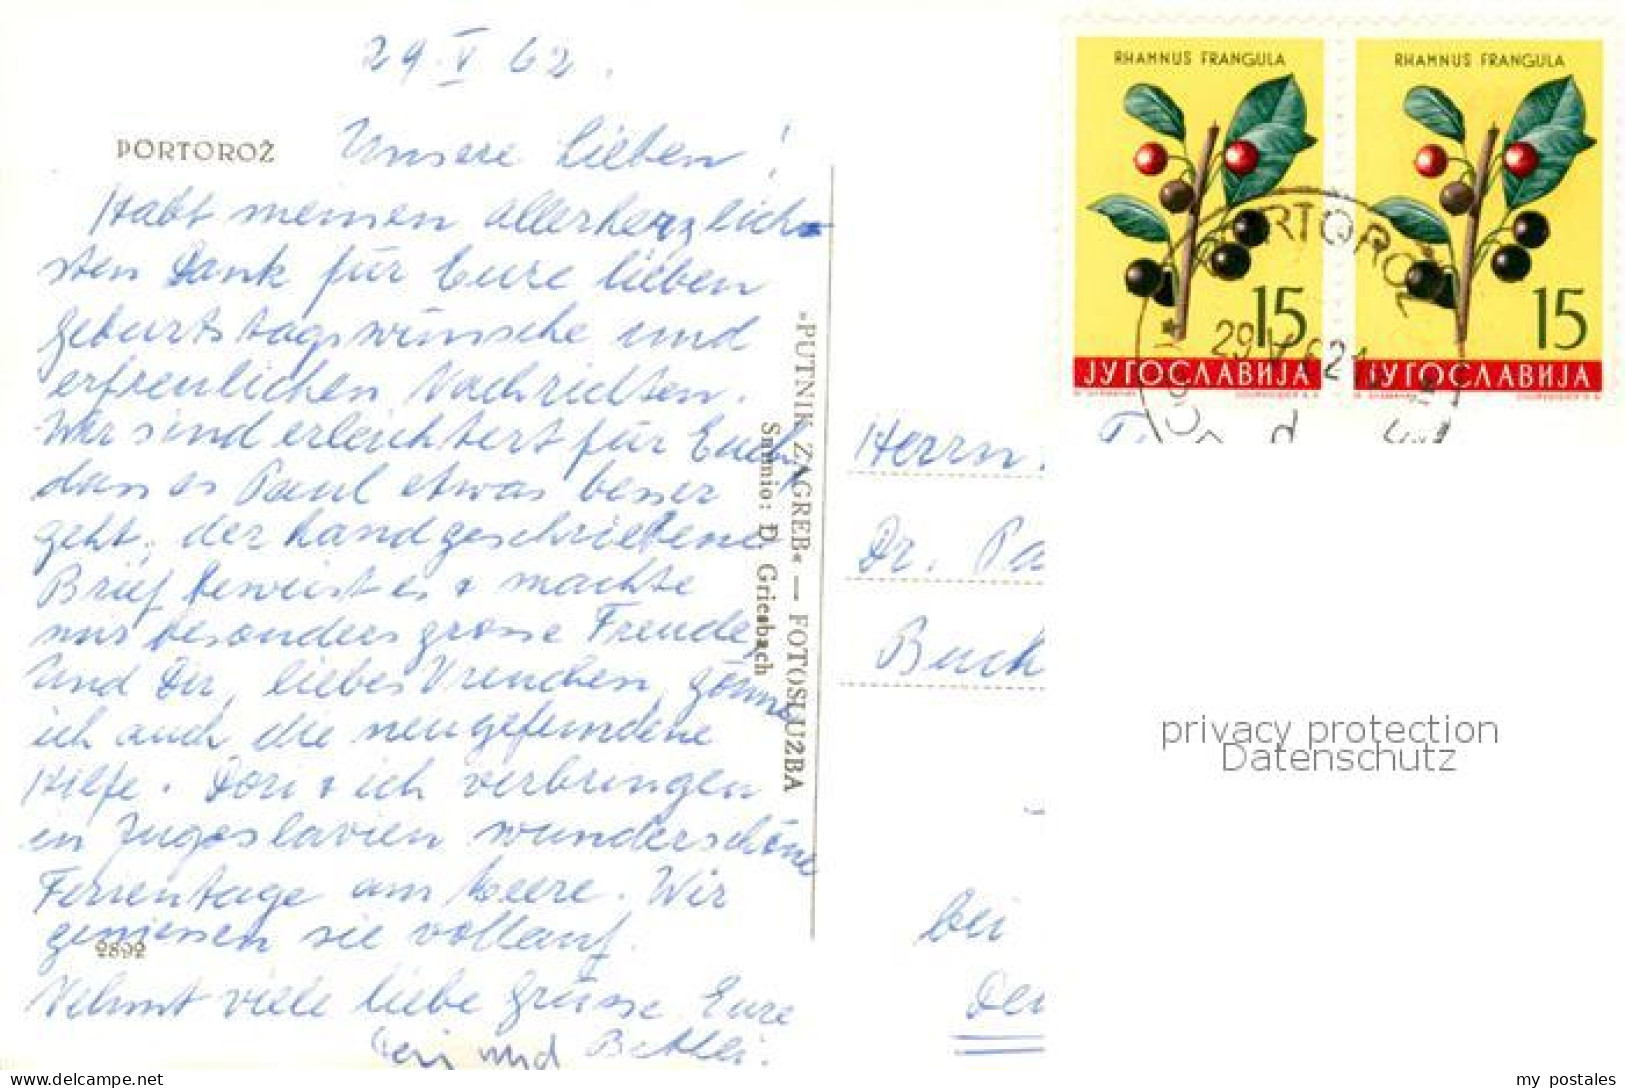 29 V 62.
PORTOROŽ
Unsere Lieben!
Habt meinen allerherzlich-
sten Dank für Eure lieben
Geburtstagswünsche und
erfreulichen Nachrichten.
Wir sind erleichtert für Euch,
dass es Paul etwas besser
geht, der handgeschriebene
Brief beweist es & machte
uns besonders grosse Freude,
und Dir, liebes Vrenchen, gönne
ich auch die neugefundene
Hilfe. Dori & ich verbringen
in Jugoslavien wunderschöne
Ferientage am Meere. Wir
geniessen sie vollauf.
2892
Nehmt viele liebe Grüsse Eure
und Bethli.
»PUTNIK ZAGREB« — FOTOSLUŽBA
Snimio: Đ. Griesbach
RHAMNUS FRANGULA
15
ЈУГОСЛАВИЈА
RHAMNUS FRANGULA
15
ЈУГОСЛАВИЈА
PORTOROŽ
29 V 62
Herrn
Dr. Pa
Buch
bei
privacy protection
Datenschutz
www.delcampe.net
my_postales